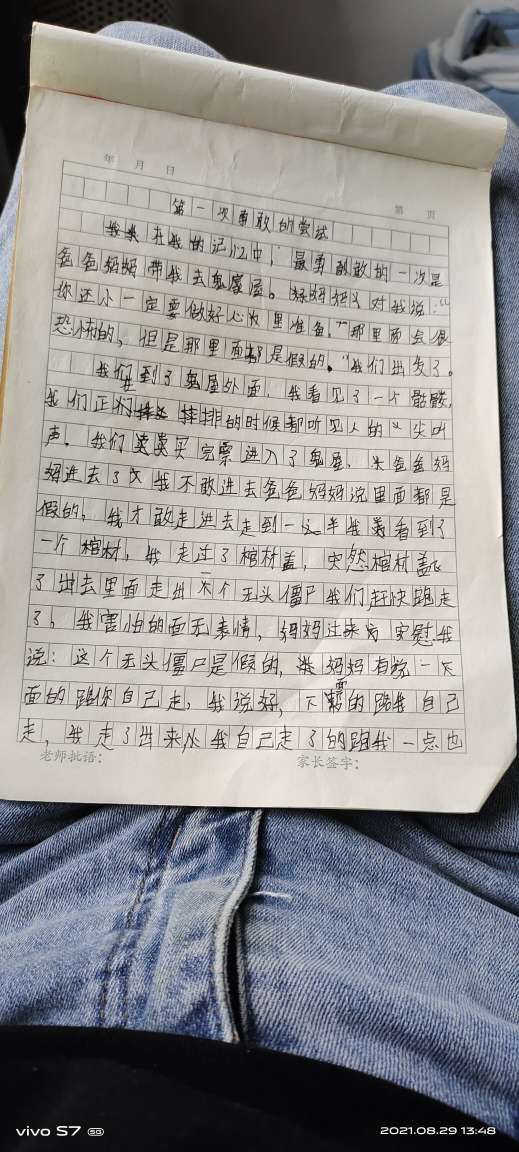 年 月 日
第 页
第一次勇敢的尝试
在我的记忆中，最勇敢的一次是
爸爸妈妈带我去鬼屋。妈妈对我说：“
你还小一定要做好心里准备。”“那里面会很
恐怖的，但是那里面都是假的。”我们出发了。
我们到了鬼屋外面，我看见了一个骷髅，
我们正在排的时候都听见人的尖叫
声。我们买完票进入了鬼屋，爸爸妈
妈进去了我不敢进去爸爸妈妈说里面都是
假的，我才敢走进去走到一半我看到了
一个棺材，我走过了棺材盖，突然棺材盖飞
了出去里面走出一个无头僵尸我们赶快跑走
了，我害怕的面无表情，妈妈过来安慰我
说：这个无头僵尸是假的，妈妈有说一下
面的路你自己走，我说好，下面的路我自己
走，我走了出来从我自己走了的路我一点也
老师批语：
家长签字：
vivo S7 5G
2021.08.29 13:48